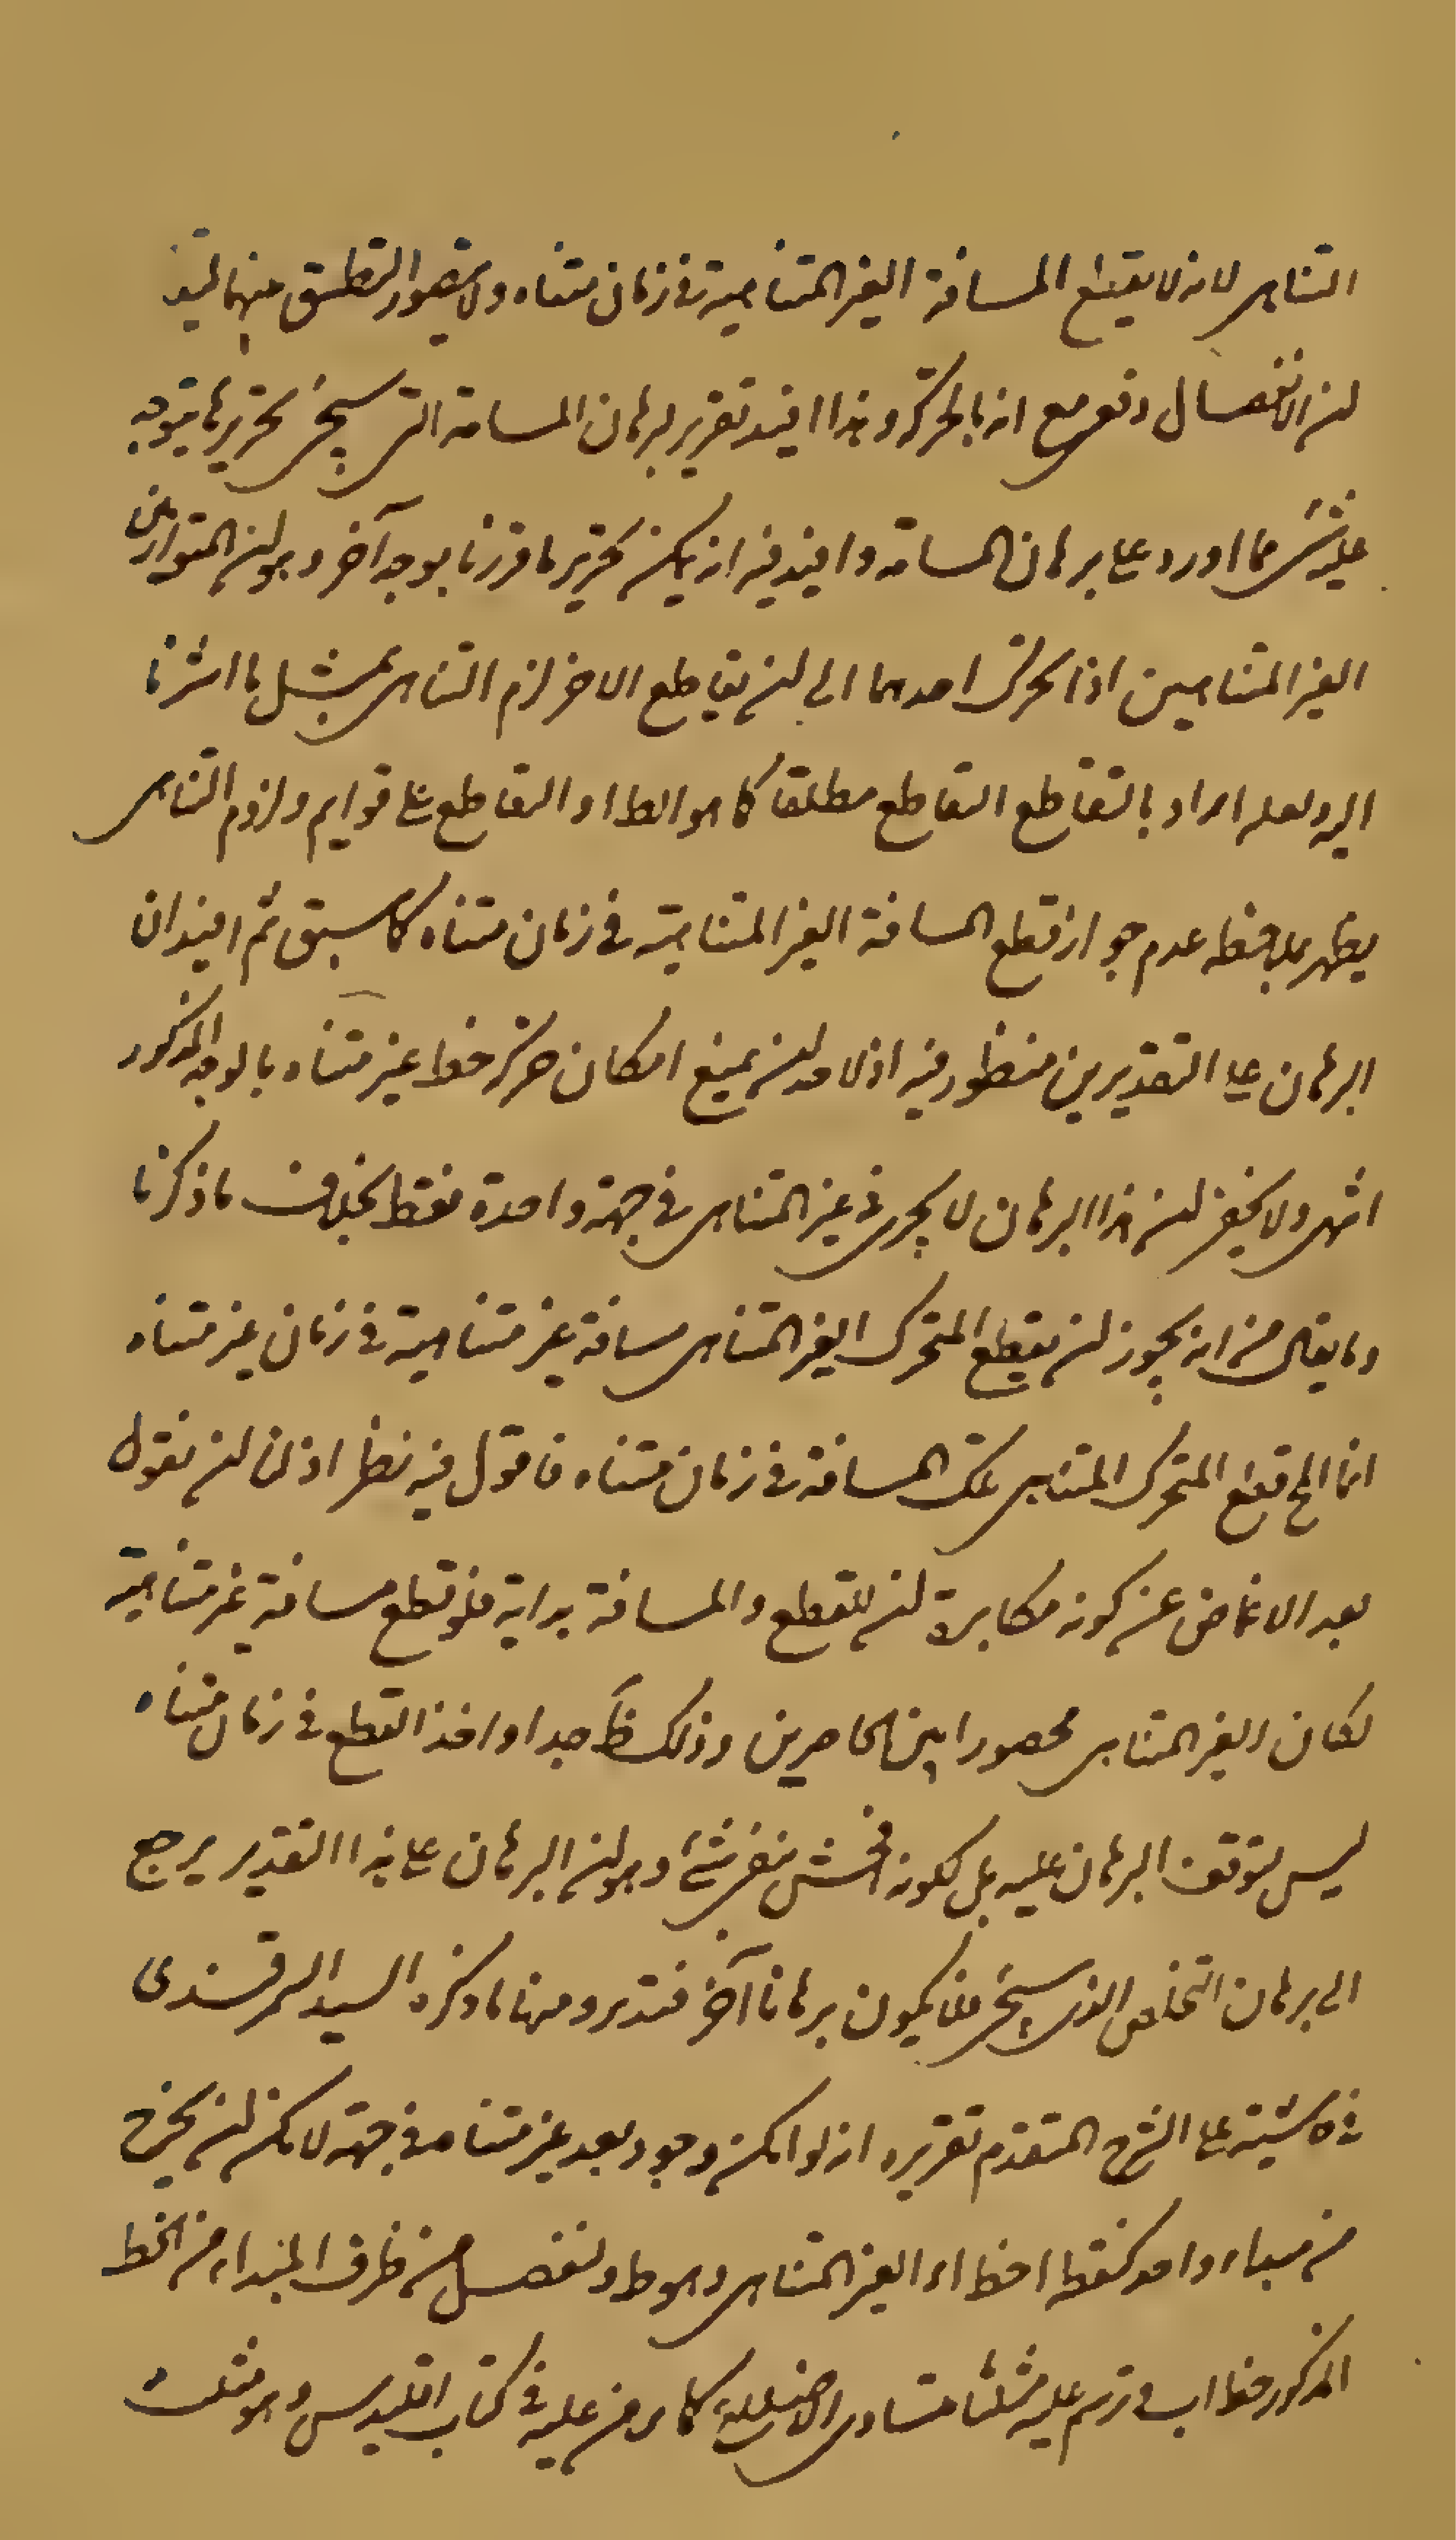 التناهى لانه لا يقطع المسافة الغير المتناهية فى زمان متناه ولا يتصور التطبيق بينهما
ان الانفصال دفعى مع انه بالحركة وهذا ايضا تقرير برهان المسامتة التى سيجئ تحريرها يتوجه
عليه شئ مما اورد على برهان المسامتة وايضا فيه انه يمكن تحرير ما قررنا بوجه آخر وهو ان المتوازيين
الغير المتناهيين اذا تحرك احدهما الى ان يقاطع الاخر لزم التناهى بمثل ما اشرنا
اليه ولعله اراد بالتقاطع التقاطع مطلقا كما هو الظ او التقاطع على قوايم ولزوم التناهى
يظهر بملاحظة عدم جواز قطع المسافة الغير المتناهية فى زمان متناه كما سبق ثم ايضا ان
البرهان على التقديرين منظور فيه اذ لاحد ان يمنع امكان حركة خط غير متناه بالوجه المذكور
انتهى ولا يخفى ان هذا البرهان لا يجرى فى غير المتناهى فى جهة واحدة فقط بخلاف ما ذكرنا
وما يقال من انه يجوز ان يقطع المتحرك الغير المتناهى مسافة غير متناهية فى زمان غير متناه
انما المح قطع المتحرك المتناهى تلك المسافة فى زمان متناه فاقول فيه نظر اذ لنا ان نقول
بعد الاغماض عن كونه مكابرة ان للقطع والمسافة بداية فلو قطع مسافة غير متناهية
لكان الغير المتناهى محصورا بين الحاصرين وذلك ظ جدا واخذ القطع فى زمان متناه
ليس لتوقف البرهان عليه بل لكونه افحش بقى شئ وهو ان البرهان على هذا التقدير يرجع
الى برهان التخلص الذى سيجئ فلا يكون برهانا آخر فتدبر ومنها ما ذكره السيد السمرقندى
فى حاشيته على الشرح المتقدم تقريره انه لو امكن وجود بعد غير متناه فى جهة لامكن ان يخرج
من مبداء واحد كنقطة ا خط ا د الغير المتناهى وهو ظ ولنفصل من طرف المبداء من الخط
المذكور خط ا ب فنرسم عليه مثلثا متساوى الاضلاع كما برهن عليه فى كتاب اقليدس وهو مثلث